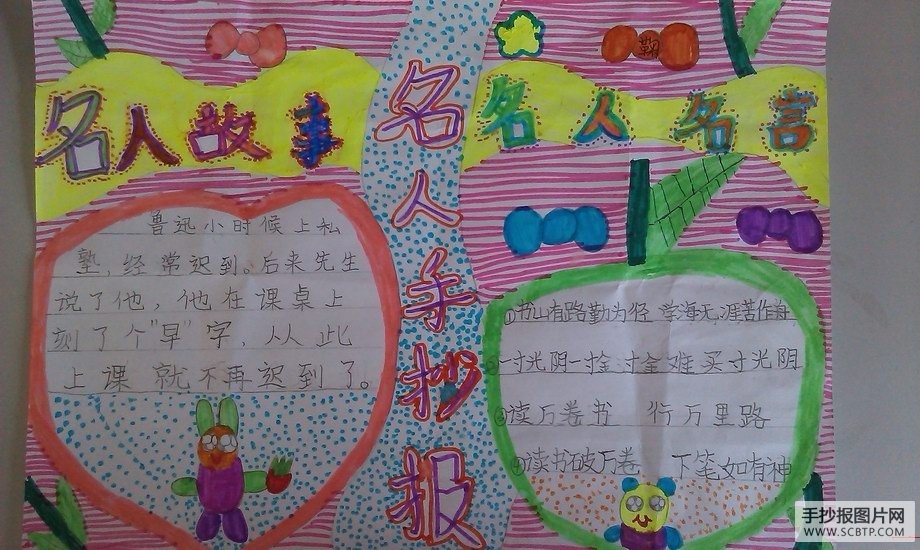 名人故事
鲁迅小时候上私
塾，经常迟到。后来先生
说了他，他在课桌上
刻了个"早"字，从此
上课就不再迟到了。
名人手抄报
名人名言
①书山有路勤为径 学海无涯苦作舟
②一寸光阴一寸金 寸金难买寸光阴
③读万卷书 行万里路
④读书破万卷 下笔如有神
手抄报图片网
WWW.SCBTP.COM